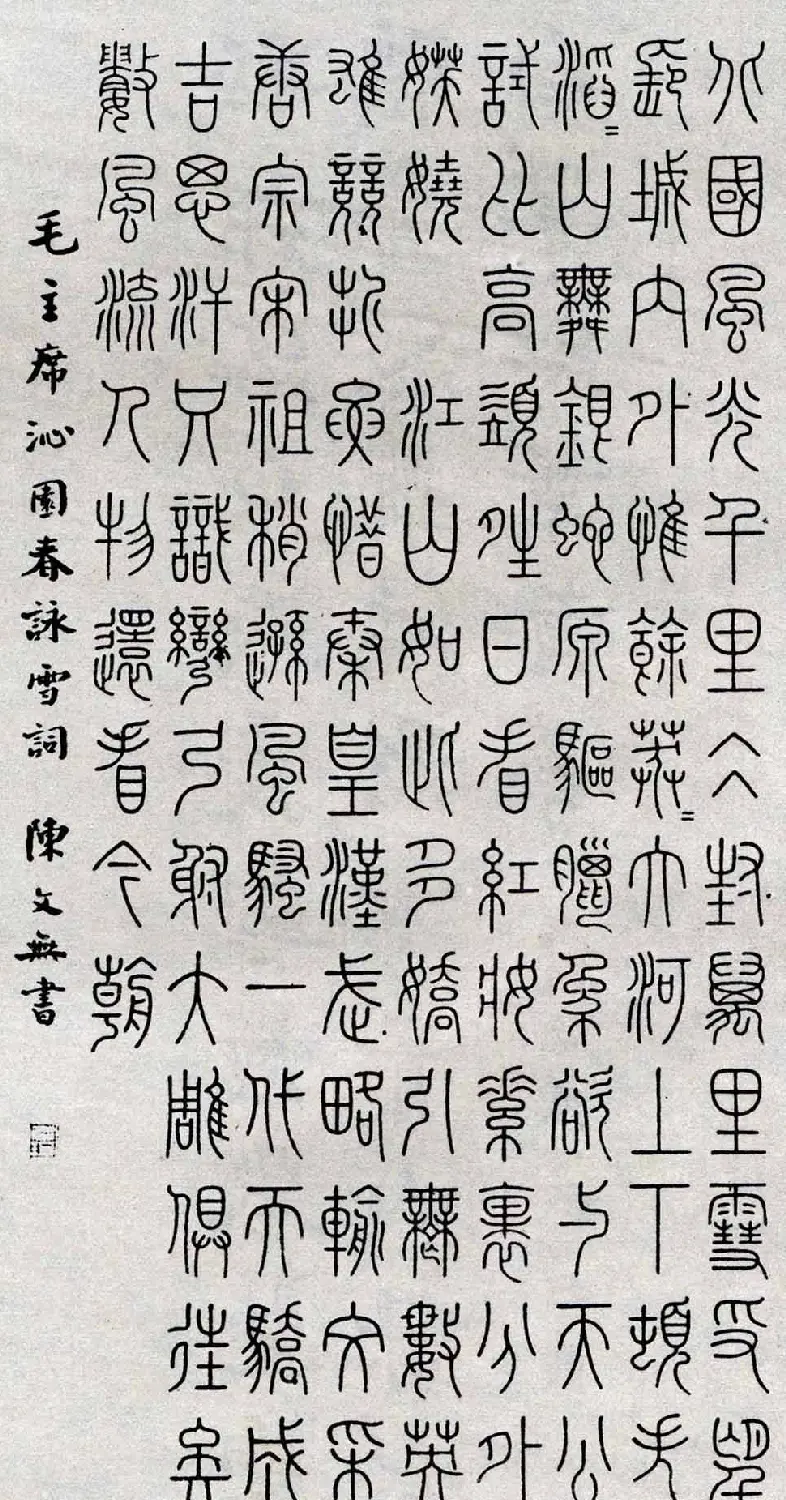 北國風光千里仌封萬里雪𠬪望
長城內外惟餘莽=大河上下頓失
滔=山舞銀蛇原驅臘象欲与天公
試比高須夝日看紅妝素裹分外
媄嬈 江山如此多嬌引無數英
雄競折要惜秦皇漢武略輸文采
唐宗宋祖稍遜風騷一代天驕成
吉思汗只識彎弓射大雕俱往矣
數風流人物還看今朝
毛主席沁園春詠雪詞 陳文無書